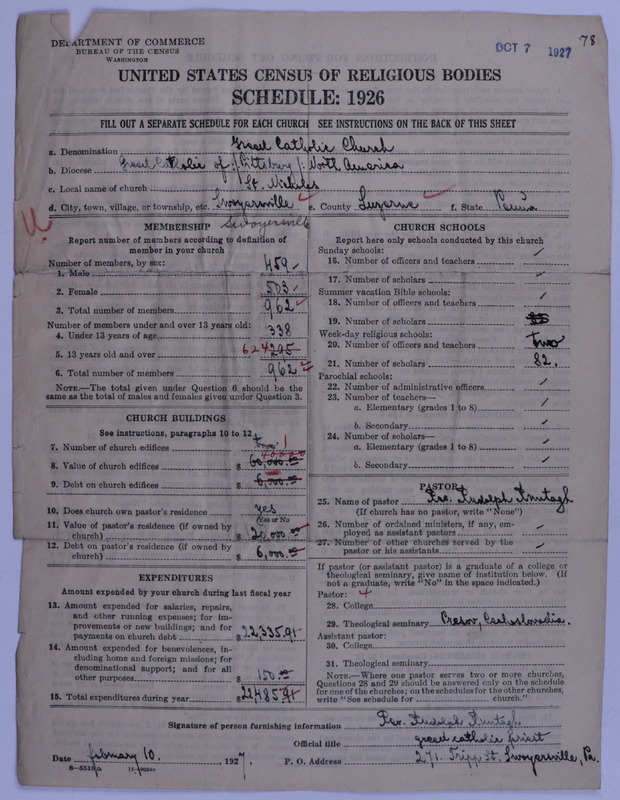 DEPARTMENT OF COMMERCE
BUREAU OF THE CENSUS
WASHINGTON
OCT 7 1927
78
UNITED STATES CENSUS OF RELIGIOUS BODIES
SCHEDULE: 1926
FILL OUT A SEPARATE SCHEDULE FOR EACH CHURCH SEE INSTRUCTIONS ON THE BACK OF THIS SHEET
a. Denomination Greek Catholic Church
b. Diocese Greek Catholic of Pittsburg North America
c. Local name of church St. Nicholas
d. City, town, village, or township, etc. Swoyersville e. County Luzerne f. State Penna
Swoyersville
MEMBERSHIP
Report number of members according to definition of member in your church
Number of members, by sex:
1. Male 459
2. Female 503
3. Total number of members 962
Number of members under and over 13 years old:
4. Under 13 years of age 338
5. 13 years old and over 624 295
6. Total number of members 962
NOTE.—The total given under Question 6 should be the
same as the total of males and females given under Question 3.
CHURCH BUILDINGS
See instructions, paragraphs 10 to 12
7. Number of church edifices two 1
8. Value of church edifices $ 60,000.00 40000
9. Debt on church edifices $ 6,000.00
10. Does church own pastor's residence yes
(Yes or No)
11. Value of pastor's residence (if owned by
church) $ 20,000.00
12. Debt on pastor's residence (if owned by
church) $ 6,000.00
EXPENDITURES
Amount expended by your church during last fiscal year
13. Amount expended for salaries, repairs,
and other running expenses; for im-
provements or new buildings; and for
payments on church debt $ 22,335.91
14. Amount expended for benevolences, in-
cluding home and foreign missions; for
denominational support; and for all
other purposes $ 150.00
15. Total expenditures during year $ 22485.91
CHURCH SCHOOLS
Report here only schools conducted by this church
Sunday schools:
16. Number of officers and teachers
17. Number of scholars
Summer vacation Bible schools:
18. Number of officers and teachers
19. Number of scholars
Week-day religious schools:
20. Number of officers and teachers two
21. Number of scholars 82.
Parochial schools:
22. Number of administrative officers
23. Number of teachers—
a. Elementary (grades 1 to 8)
b. Secondary
24. Number of scholars—
a. Elementary (grades 1 to 8)
b. Secondary
PASTOR
25. Name of pastor Rev. Rudolph
(If church has no pastor, write "None")
26. Number of ordained ministers, if any, em-
ployed as assistant pastors
27. Number of other churches served by the
pastor or his assistants
If pastor (or assistant pastor) is a graduate of a college or
theological seminary, give name of institution below. (If
not a graduate, write "No" in the space indicated.)
Pastor: 4
28. College
29. Theological seminary Presov, Czechoslovakia.
Assistant pastor:
30. College
31. Theological seminary
NOTE.—Where one pastor serves two or more churches,
Questions 28 and 29 should be answered only on the schedule
for one of the churches; on the schedules for the other churches,
write "See schedule for church."
Signature of person furnishing information Rev. Rudolph
Official title greek catholic priest
Date February 10. 1927, P. O. Address 271. Tripp St. Swoyersville, Pa.